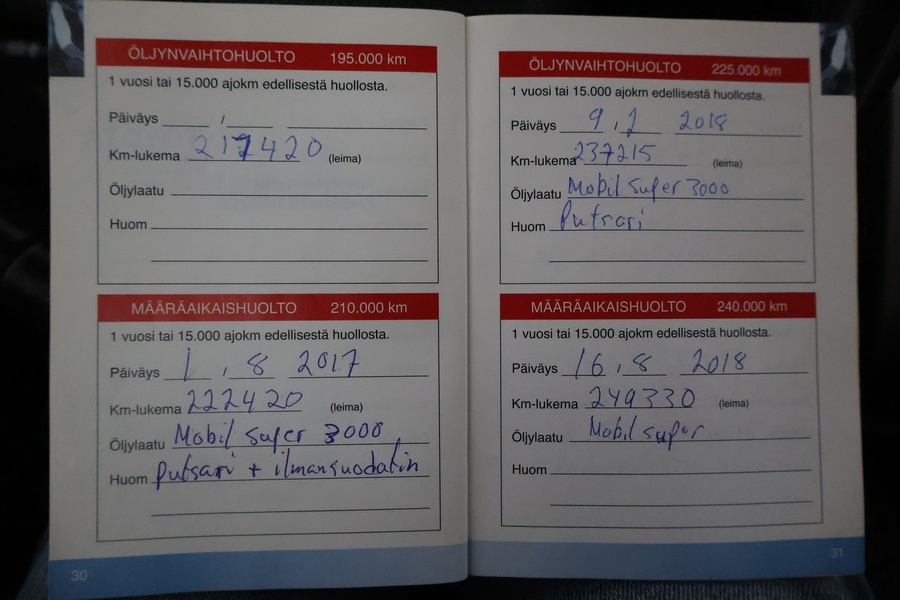 ÖLJYNVAIHTOHUOLTO 195.000 km
1 vuosi tai 15.000 ajokm edellisestä huollosta.
Päiväys /
Km-lukema 217420 (leima)
Öljylaatu
Huom
MÄÄRÄAIKAISHUOLTO 210.000 km
1 vuosi tai 15.000 ajokm edellisestä huollosta.
Päiväys 1 , 8 2017
Km-lukema 222420 (leima)
Öljylaatu Mobil super 3000
Huom putsari + ilmansuodatin
30
ÖLJYNVAIHTOHUOLTO 225.000 km
1 vuosi tai 15.000 ajokm edellisestä huollosta.
Päiväys 9 , 2 2018
Km-lukema 237215 (leima)
Öljylaatu Mobil super 3000
Huom Putsari
MÄÄRÄAIKAISHUOLTO 240.000 km
1 vuosi tai 15.000 ajokm edellisestä huollosta.
Päiväys 16 , 8 2018
Km-lukema 249330 (leima)
Öljylaatu Mobil super
Huom
31